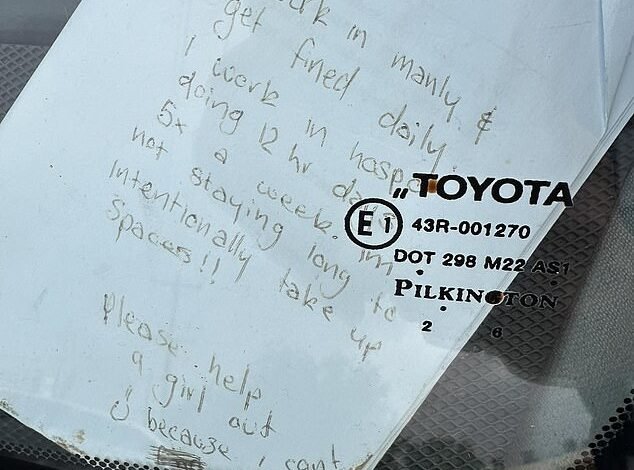 work in manly &
get fined daily.
I work in hospo
doing 12 hr days
5x a week. Im
not staying long to
Intentionally take up
spaces!!
Please help
a girl out
because i cant
TOYOTA
E1
43R-001270
DOT 298 M22 AS1
PILKINGTON
2 6